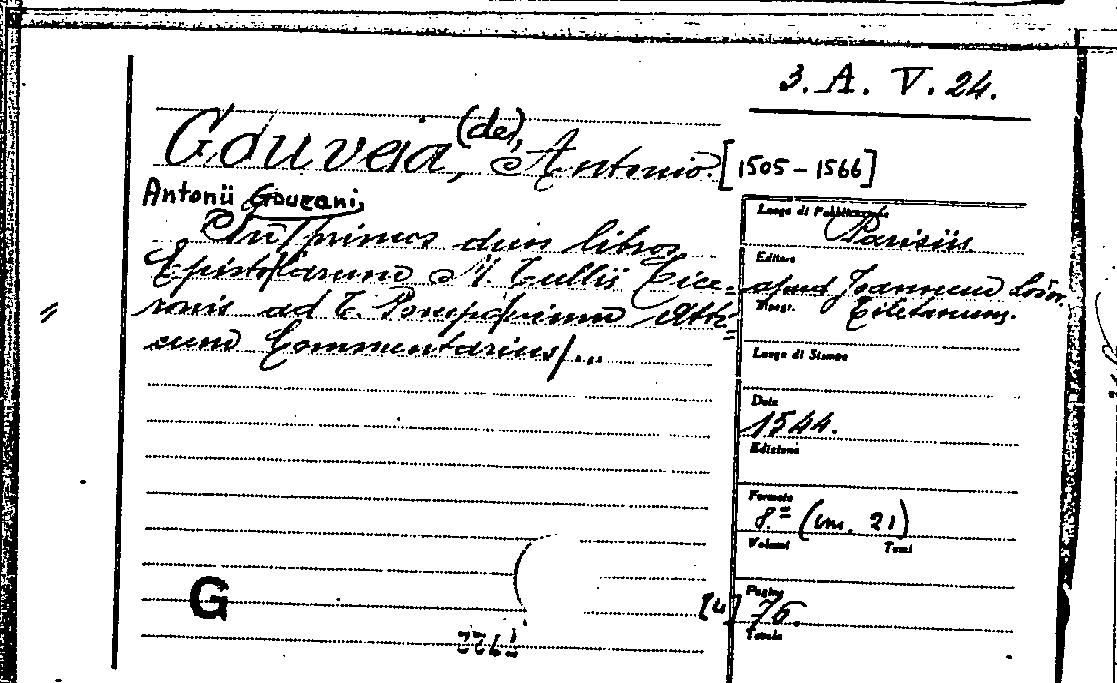 3. A. V. 24.
Gouveia, (de), Antonio. [1505 – 1566]
Antonii Goveani,
In primos duos libros
Epistolarum M. Tullii Cice=
ronis ad T. Pomponium Atti=
cum Commentarius/...
Luogo di Pubblicazione
Parisiis
Editore
apud Joannem Lodo.
Tiletanum.
Luogo di Stampa
Data
1544.
Edizione
Formato
8.º (cm. 21)
Volumi Tomi
Pagine
[4] 76.
Tavole
G